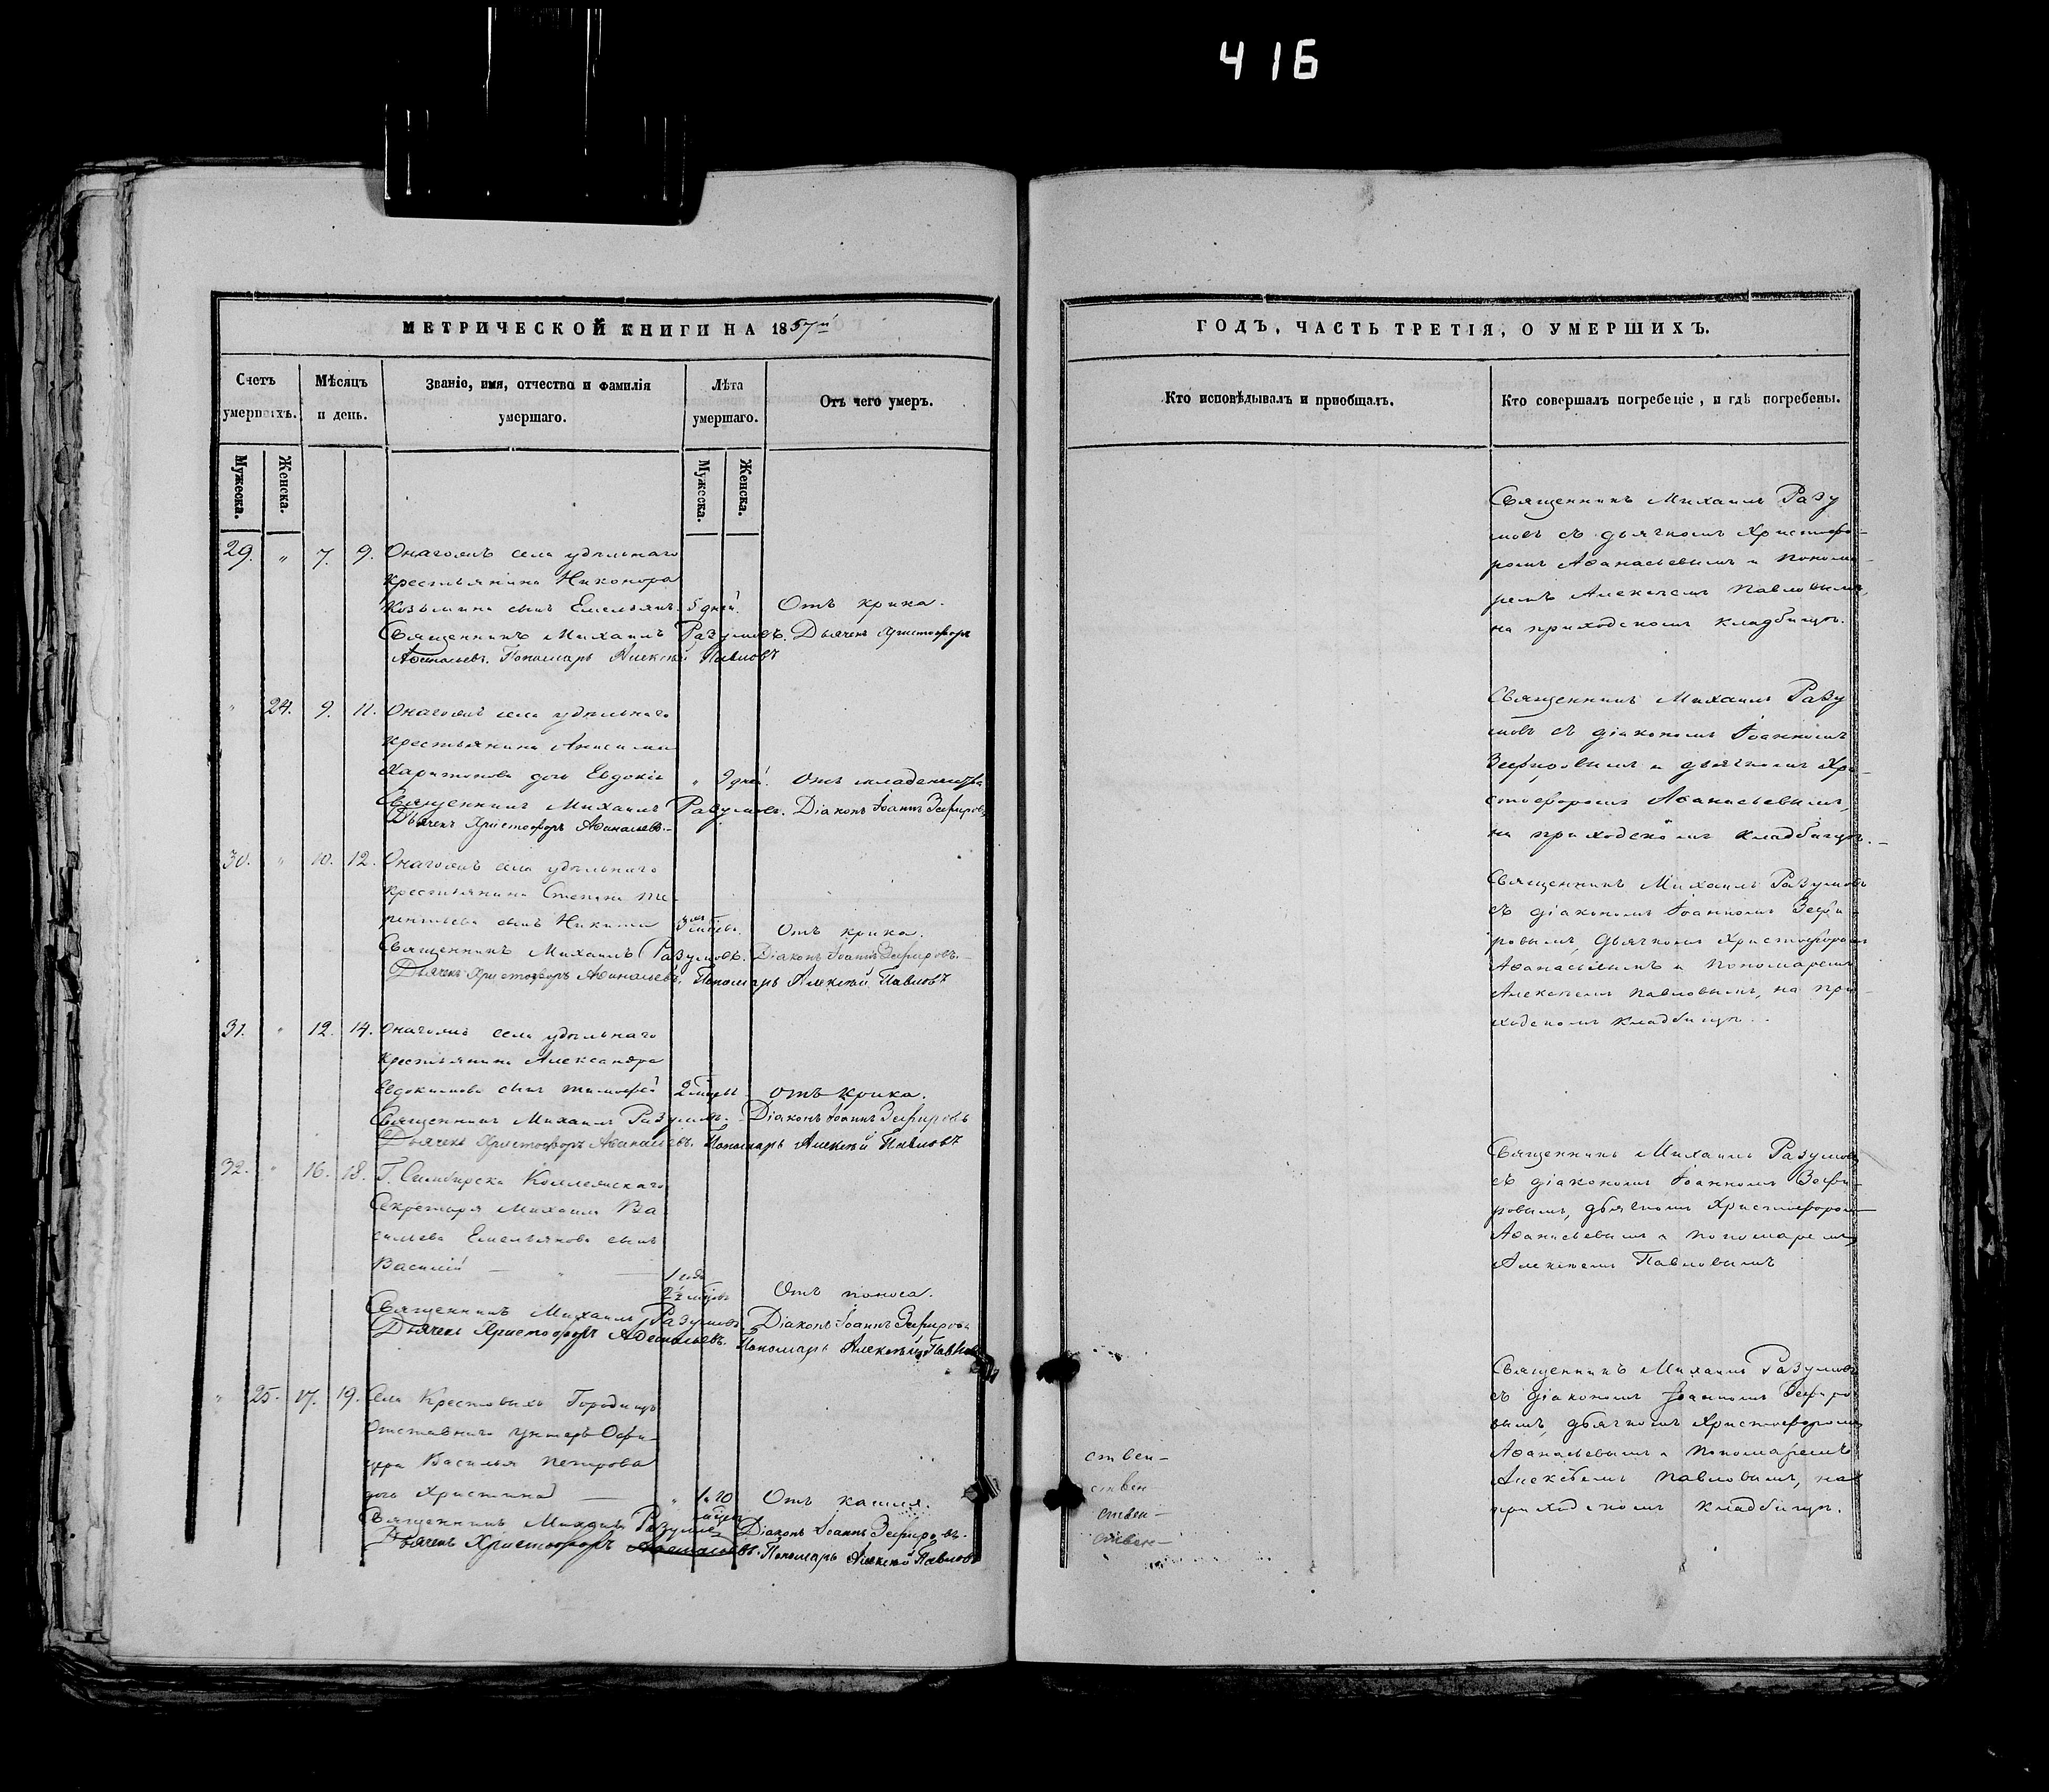 416
МЕТРИЧЕСКОЙ КНИГИ НА 1857й
Счетъ умершихъ.
Мѣсяцъ и день.
Званіе, имя, отчество и фамилія умершаго.
Лѣта умершаго.
Отъ чего умеръ.
Мужеска.
Женска.
Мужеска.
Женска.
29. " 7. 9. Онагожъ села удѣльнаго
крестьянина Никонора
Козьмина сынъ Емельянъ 5 дней. Отъ крика.
Священникъ Михаилъ Разумовъ. Дьячекъ Христофоръ
Аѳанасьевъ. Пономарь Алексѣй Павловъ
" 24. 9. 11. Онагожъ села удѣльнаго
крестьянина Анисима
Харитонова дочь Евдокія " 9 дней. Отъ младенчества
Священникъ Михаилъ Разумовъ. Діаконъ Іоаннъ Зефировъ
Дьячекъ Христофоръ Аѳанасьевъ.
30. " 10. 12. Онагожъ села удѣльнаго
крестьянина Степана Те-
рентьева сынъ Никита 3 мѣсцы. Отъ крика.
Священникъ Михаилъ Разумовъ. Діаконъ Іоаннъ Зефировъ.
Дьячекъ Христофоръ Аѳанасьевъ. Пономарь Алексѣй Павловъ
31. " 12. 14. Онагожъ села удѣльнаго
крестьянина Александра
Евдокимова сынъ Тимофей 2 мѣсцы Отъ крика.
Священникъ Михаилъ Разумовъ. Діаконъ Іоаннъ Зефировъ
Дьячекъ Христофоръ Аѳанасьевъ. Пономарь Алексѣй Павловъ
32. " 16. 18. Г. Симбирска Коллежскаго
Секретаря Михаила Ва
сильева Емельянова сынъ
Василій 1 годъ
2½ мѣсцовъ Отъ поноса.
Священникъ Михаилъ Разумовъ. Діаконъ Іоаннъ Зефировъ
Дьячекъ Христофоръ Аѳанасьевъ. Пономарь Алексѣй Павловъ
" 25. 17. 19. Села Крестовыхъ Городищъ
Отставнаго Унтеръ-Офи-
цера Василья Петрова
дочь Христина " 1 и 10 мѣсцъ Отъ кашля.
Священникъ Михаилъ Разумовъ Діаконъ Іоаннъ Зефировъ.
Дьячекъ Христофоръ Аѳанасьевъ. Пономарь Алексѣй Павловъ
ГОДЪ, ЧАСТЬ ТРЕТІЯ, О УМЕРШИХЪ.
Кто исповѣдывалъ и пріобщалъ.
Кто совершалъ погребеніе, и гдѣ погребены.
Священникъ Михаилъ Разу
мовъ съ дьячкомъ Христофо-
ромъ Аѳанасьевымъ и понома-
ремъ Алексѣемъ Павловымъ,
на приходскомъ кладбищѣ.
Священникъ Михаилъ Разу
мовъ съ діакономъ Іоанномъ
Зефировымъ и дьячкомъ Хри-
стофоромъ Аѳанасьевымъ,
на приходскомъ кладбищѣ.
Священникъ Михаилъ Разумовъ
съ діакономъ Іоанномъ Зефи-
ровымъ, дьячкомъ Христофоромъ
Аѳанасьевымъ и пономаремъ
Алексѣемъ Павловымъ, на при-
ходскомъ кладбищѣ.
Священникъ Михаилъ Разумовъ
съ діакономъ Іоанномъ Зефи-
ровымъ, дьячкомъ Христофоромъ
Аѳанасьевымъ и пономаремъ
Алексѣемъ Павловымъ
Священникъ Михаилъ Разумовъ
съ діакономъ Іоанномъ Зефиро-
вымъ, дьячкомъ Христофоромъ
Аѳанасьевымъ и пономаремъ
Алексѣемъ Павловымъ, на
приходскомъ кладбищѣ.
ствен-
ствен
ствен-
ствен-